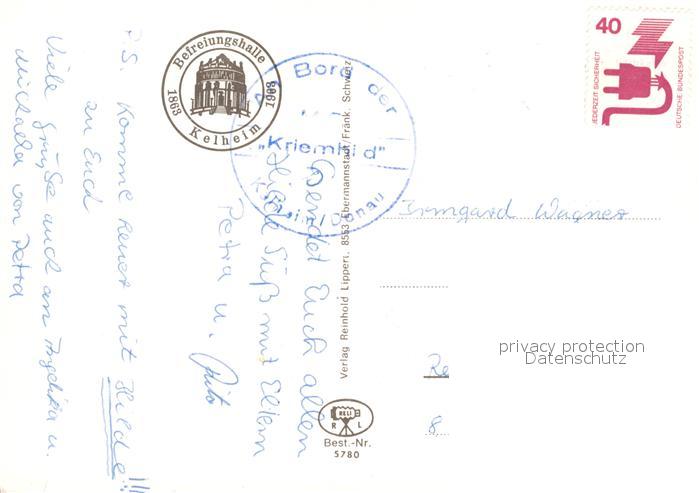 sendet Euch allen
Hilde Gruß mit Eltern
Petra u.
P.S. Komme heuer mit Hilde!!!
zu Euch
Viele Grüße auch an Angelika u.
Michaela von Petra
Befreiungshalle
1863 1988
Kelheim
An Bord der
"Kriemhild"
Kelheim/Donau
Verlag Reinhold Lippert, 8553 Ebermannstadt/Fränk. Schweiz
RELI
R L
Best.-Nr.
5780
40
JEDERZEIT SICHERHEIT
DEUTSCHE BUNDESPOST
Irmgard Wagner
Re
8
privacy protection
Datenschutz